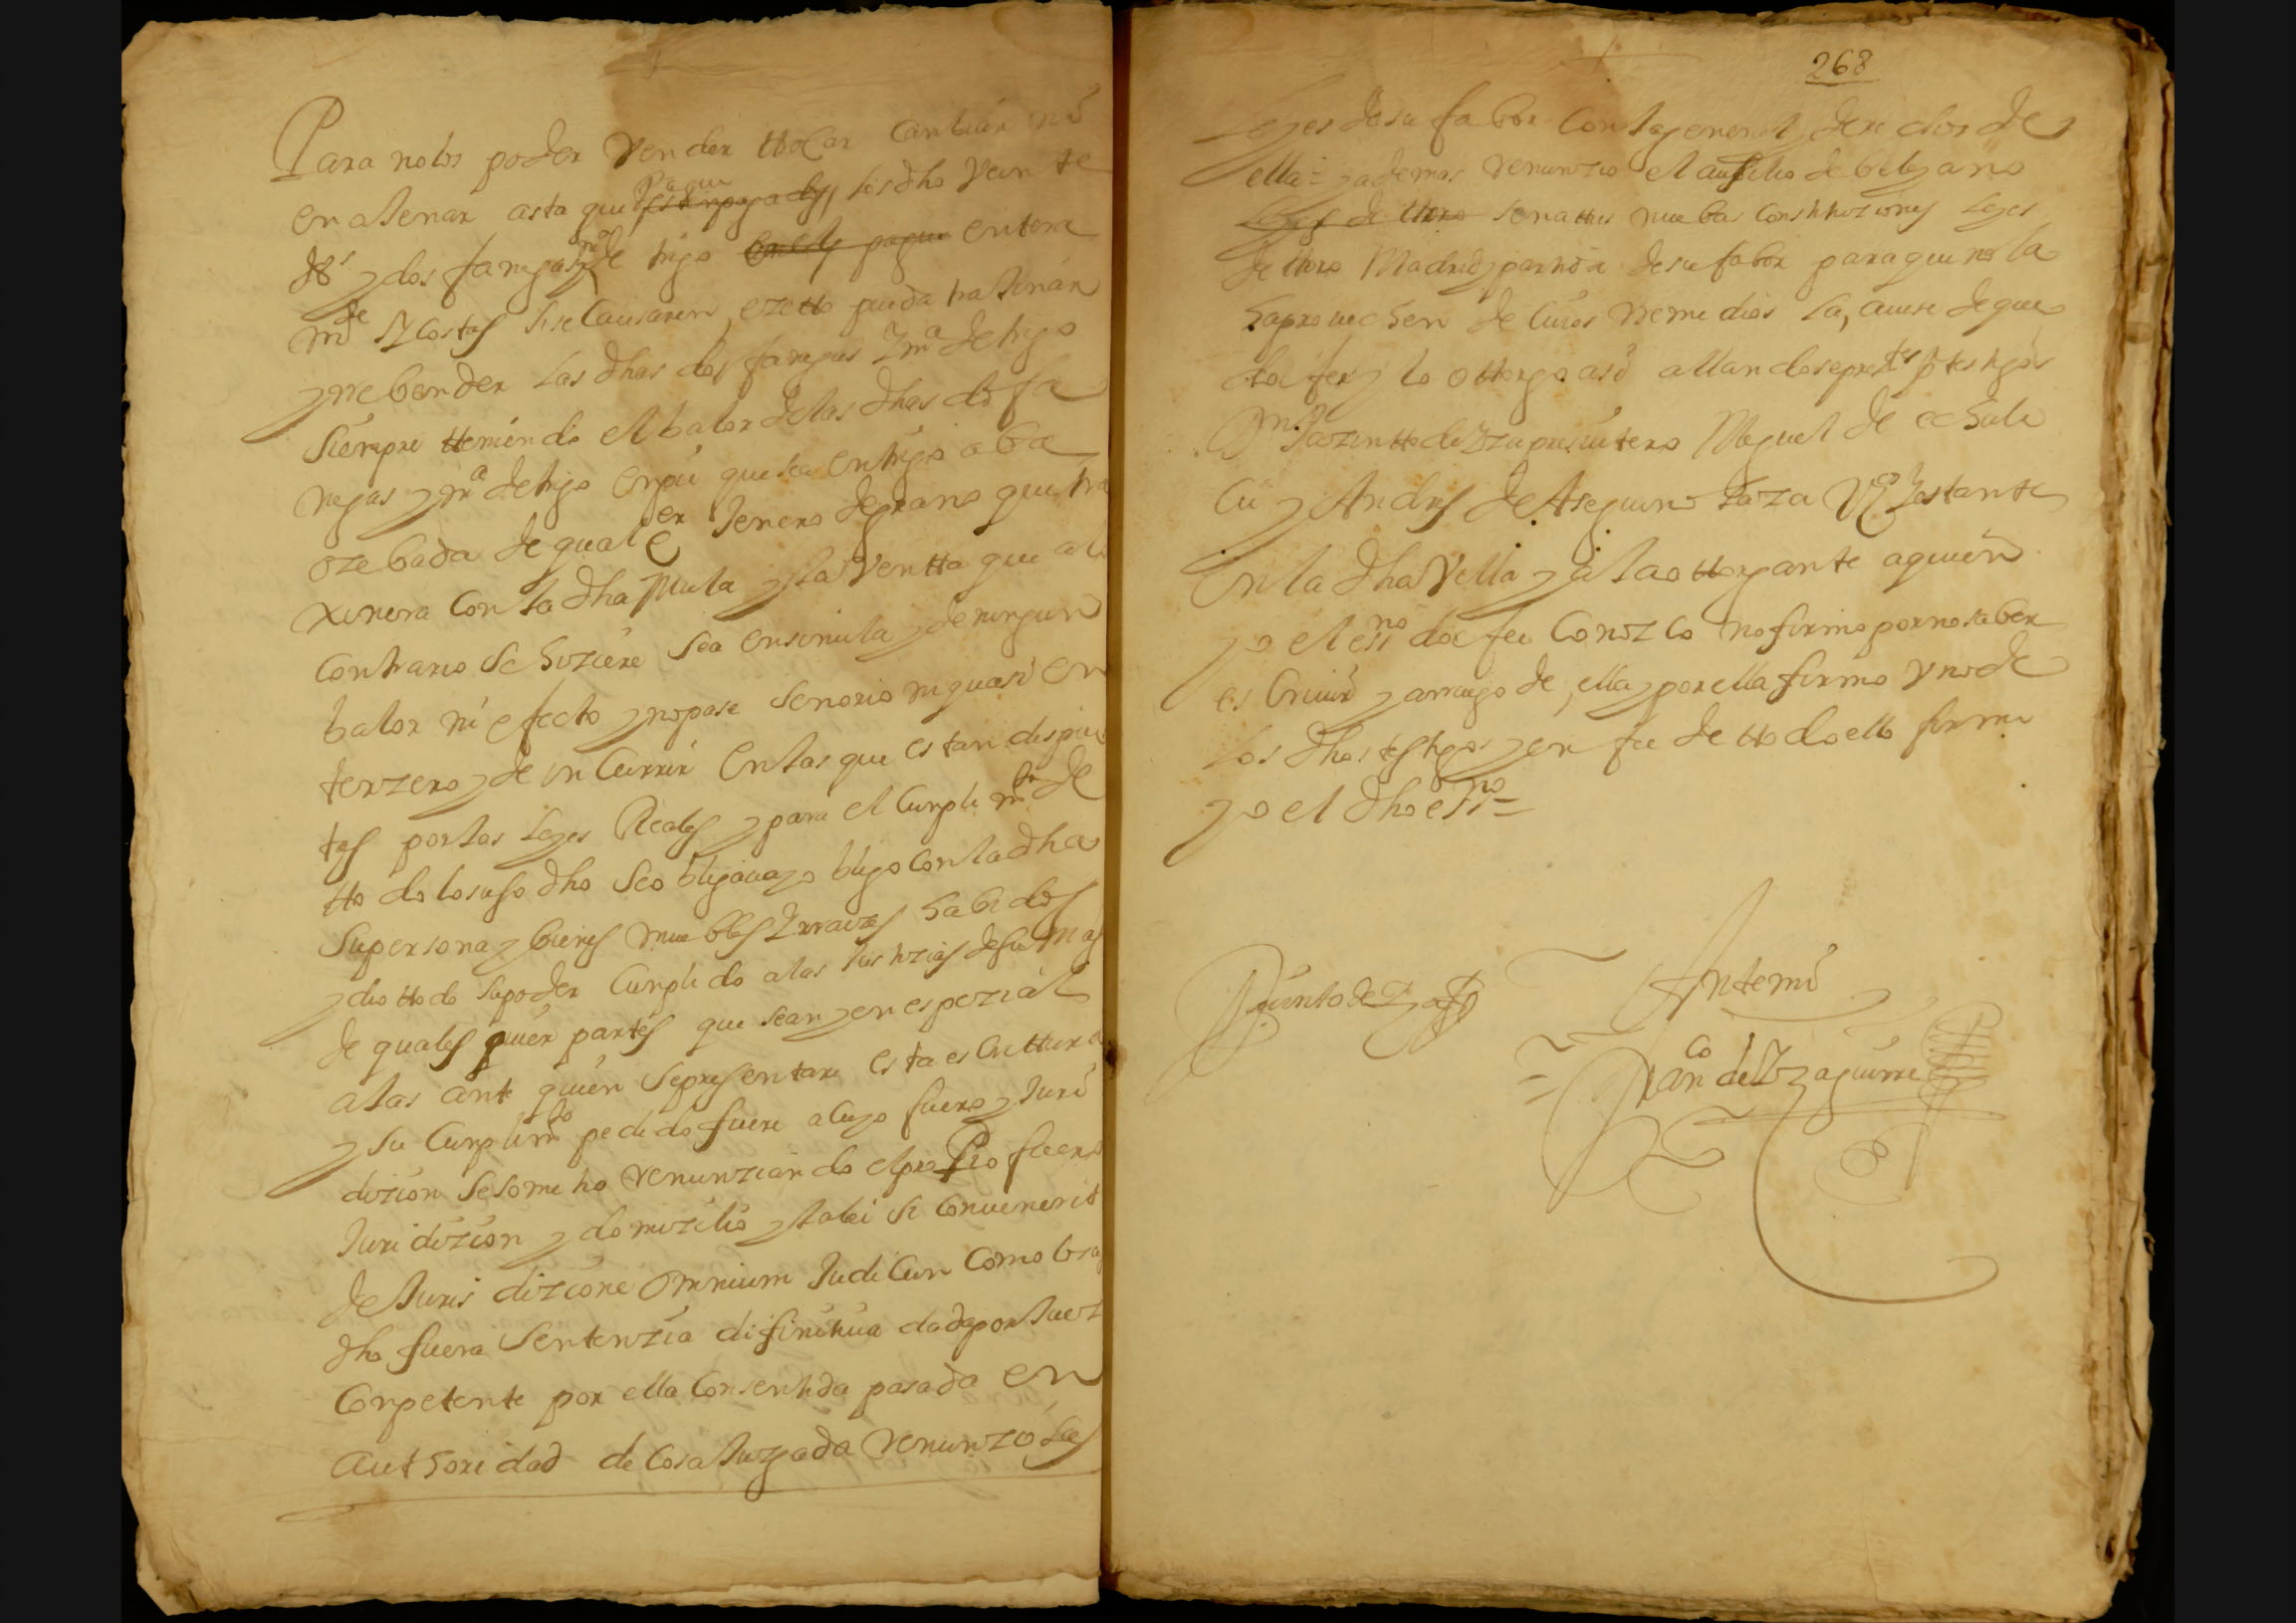 Para no los poder vender ttrocar canbiar ni
enaxenar asta que pague los dho veinte
Ds y dos fanegas y mª de trigo entera
mte y costas si se causaren, ezeto pueda traxinar
y rebender las dhas dos fanegas y mª de trigo
siempre tteniendo el balor de las dhas dos fa
negas y mª de trigo en pie que sea en trigo aba
o zebada de qualqer jenero de grano que tra
xinera con la dha mula y la ventta que a lo
contrario se hiziere sea en si nula y de ningun
balor ni efecto y no pase senorio ni quasi en
terzero y de incurrir en las que estan dispues
tas por las leyes Reales y para el cunplimto de
ttodo lo suso dho se obligaua y obligo con la dha
su persona y bienes muebles y rraizes habidos
y dio ttodo su poder cunplido a las justizias de su mag
de quales quier partes que sean y en espezial
a las ante quien se presentare esta escrittura
y su cunplimto pedido fuere a cuyo fuero y juri
dizion se sometio renunziando el propio fuero
juridizion y domizilio y la lei si conuenerit
de jurisdizione omnium judicun como si lo
dho fuera sentenzia difinitiua dada por juez
conpetente por ella consentida pasada en
authoridad de cosa juzgada renunzio las
268
leyes de su fabor con la jeneral y derechos de
ella = y ademas renunzio el aussilio de beleyano
leyes de thoro senattus nuebas consttituziones leyes
de thoro Madrid y partida de su fabor para que no la
haprouechen de cuios remedios la, auise de que
doi fee y lo ottorgo asi allandose presttes pr testigos
Dn Jazintto de Yza presuitero Miguel de echale
cu y Andres de Aseguino laza Vos y estante
en la dha villa y a la ottorgante a quien
yo el essno doi fee conozco no firmo por no saber
escriuir y a ruego de, ella y por ella firmo vno de
los dhos testigos y en fee de ttodo ello firme
yo el dho essno =
Jacinto de Yza
Ante mi
Franco de Yzaguirre